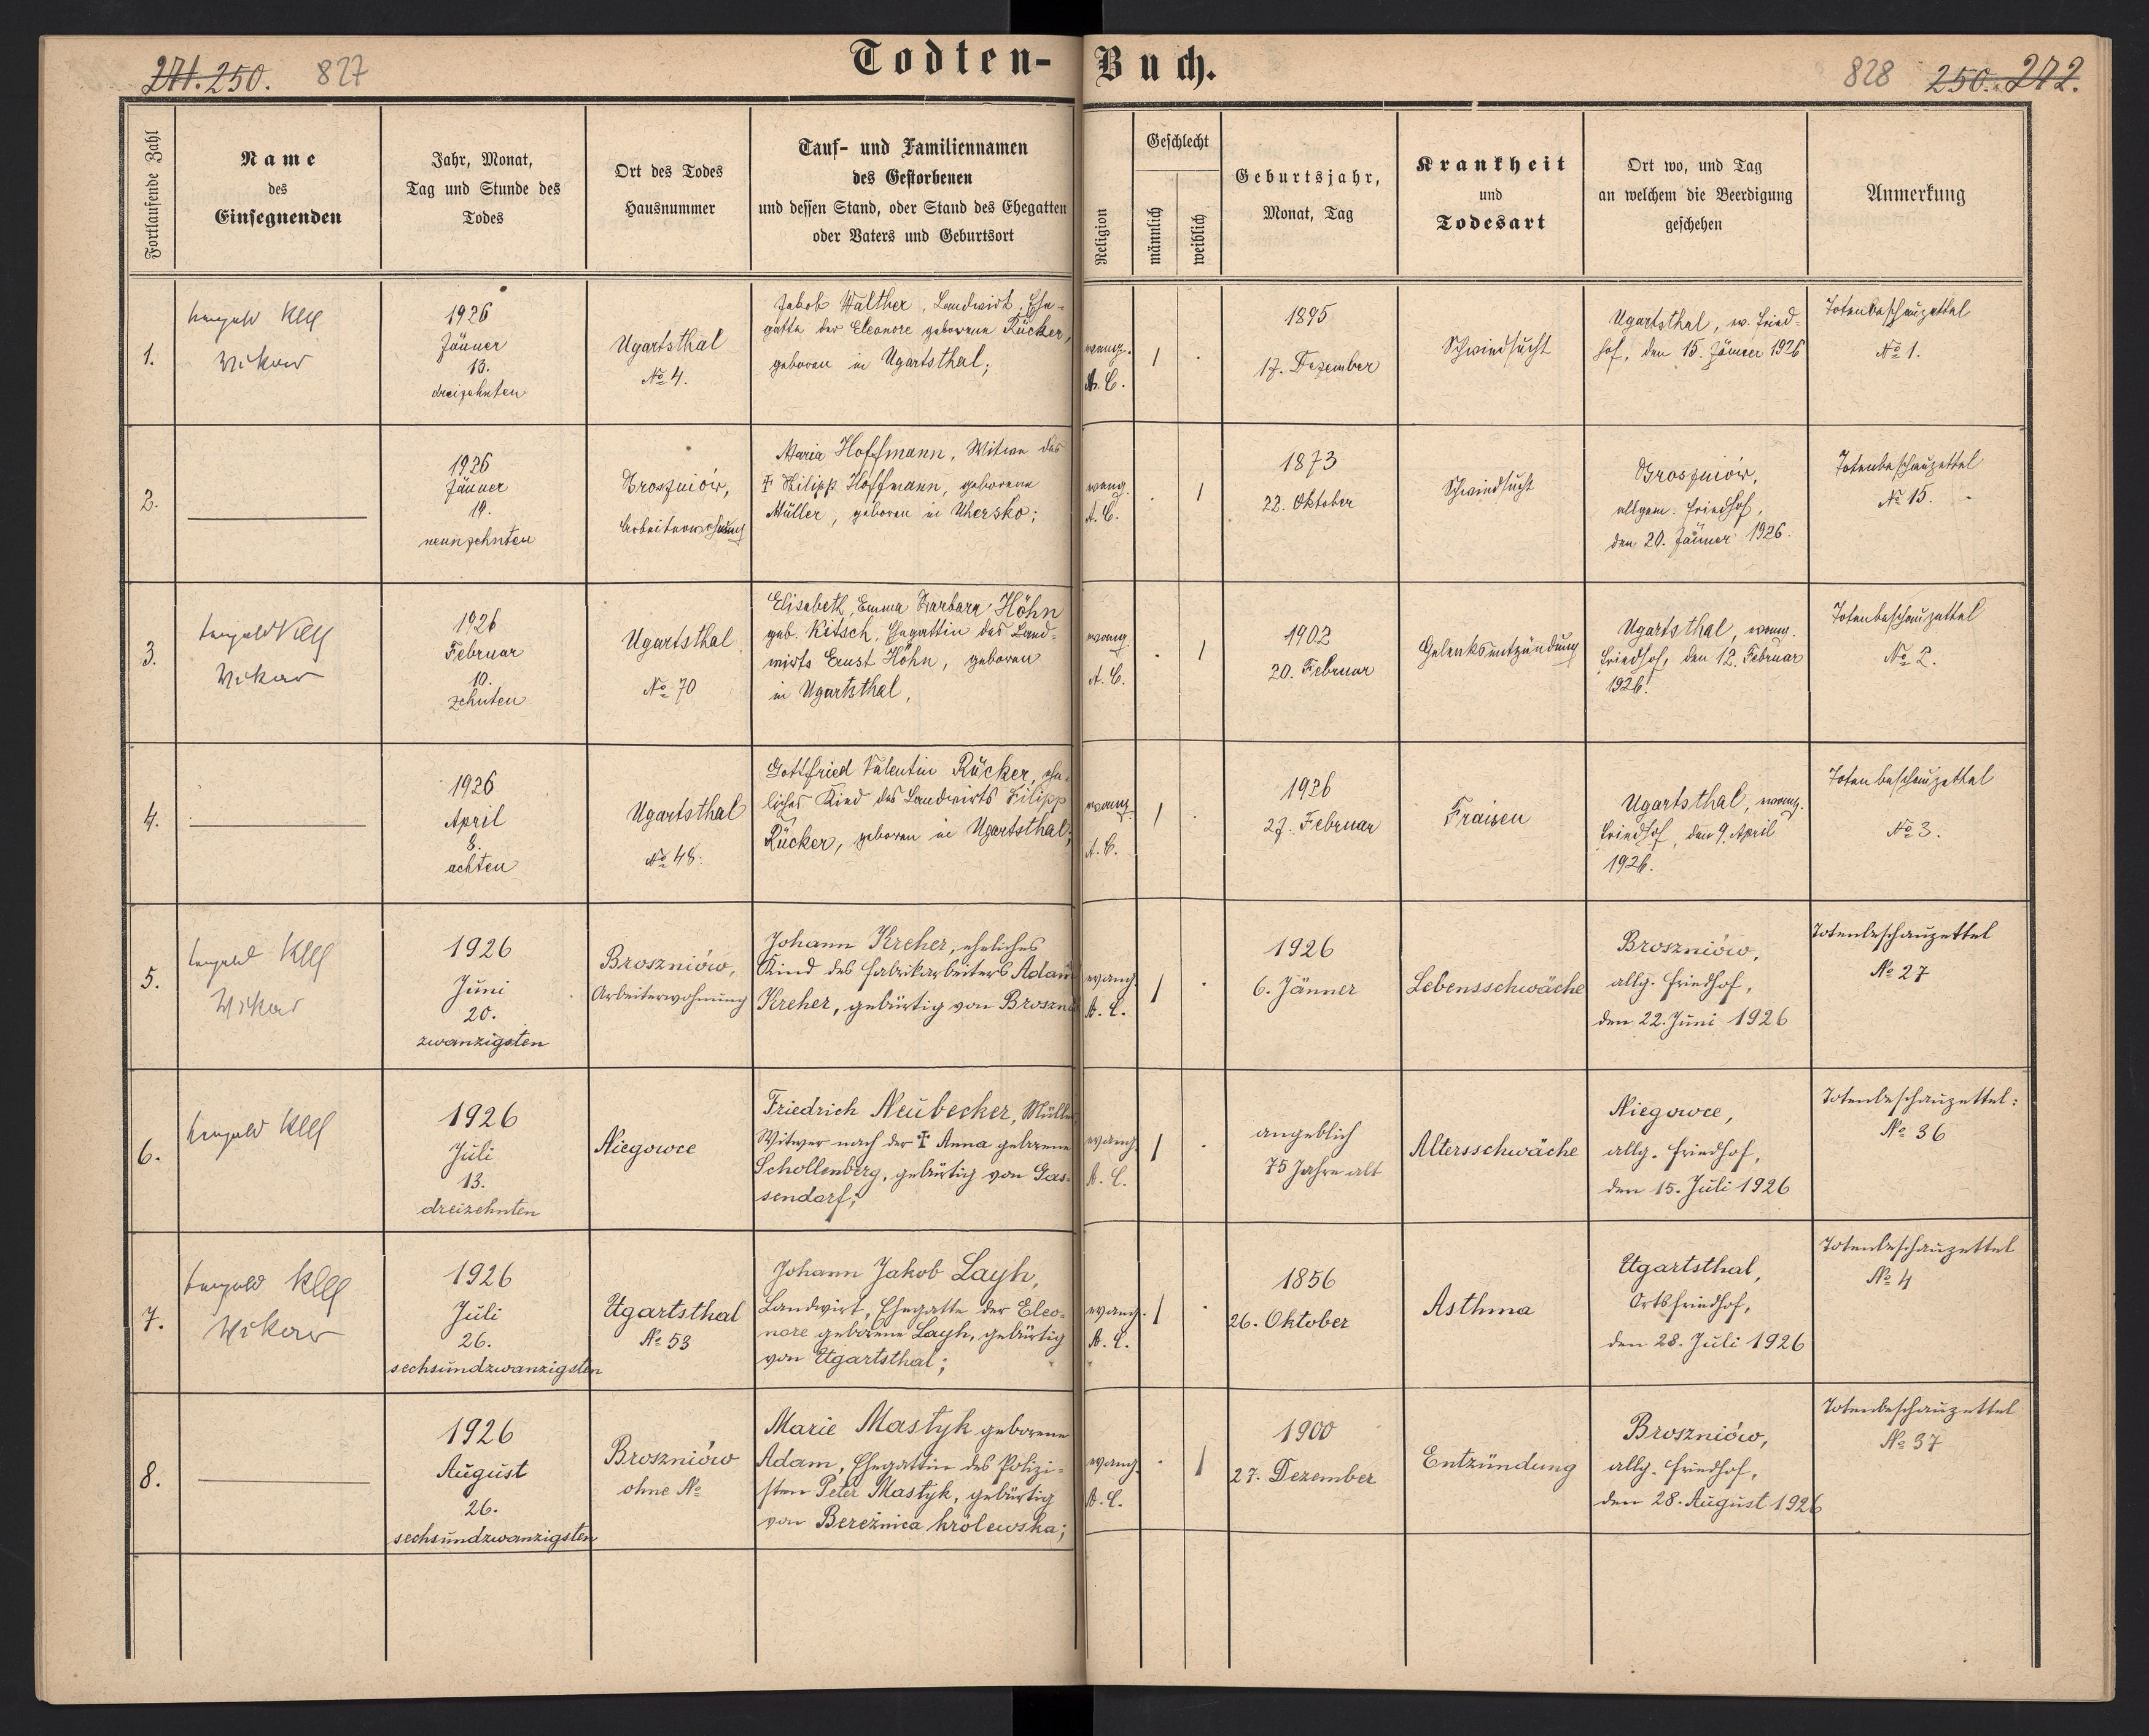 Todten-Buch.
271. 250. 827
828 250. 272.
Fortlaufende Zahl
Name
des
Einsegnenden
Jahr, Monat,
Tag und Stunde des
Todes
Ort des Todes
Hausnummer
Tauf- und Familiennamen
des Gestorbenen
und dessen Stand, oder Stand des Ehegatten
oder Vaters und Geburtsort
Religion
Geschlecht
männlich
weiblich
Geburtsjahr,
Monat, Tag
Krankheit
und
Todesart
Ort wo, und Tag
an welchem die Beerdigung
geschehen
Anmerkung
1.
Klee
Wikar
1926
Jänner
13.
dreizehnten
Ugartsthal
No 4.
Jakob Walther, Landwirt, Ehe-
gatte der Eleonore geborene Rücker,
geboren in Ugartsthal;
evang.
A. C.
1895
17. Dezember
Schwindsucht
Ugartsthal, ev. Fried-
hof, den 15. Jänner 1926
Totenbeschauzettel
No 1.
2.
1926
Jänner
19.
neunzehnten
Broszniów,
Arbeiterwohnung
Maria Hoffmann, Witwe des
† Philipp Hoffmann, geborene
Müller, geboren in Uhersko;
evang.
A. C.
1873
22. Oktober
Schwindsucht
Broszniów,
allgem. Friedhof,
den 20. Jänner 1926.
Totenbeschauzettel
No 15.
3.
Leopold Klee
Wikar
1926
Februar
10.
zehnten
Ugartsthal
No 70
Elisabeth, Emma Barbara Höhn
geb. Kitsch, Ehegattin des Land-
wirts Ernst Höhn, geboren
in Ugartsthal,
evang.
A. C.
1902
20. Februar
Gelenksentzündung
Ugartsthal, evang.
Friedhof, den 12. Februar
1926.
Totenbeschauzettel
No 2.
4.
1926
April
8.
achten
Ugartsthal
No 48.
Gottfried Valentin Rücker, ehe-
liches Kind des Landwirts Filipp
Rücker, geboren in Ugartsthal;
evang.
A. C.
1926
27. Februar
Fraisen
Ugartsthal, evang.
Friedhof, den 9. April
1926.
Totenbeschauzettel
No 3.
5.
Leopold Klee
Wikar
1926
Juni
20.
zwanzigsten
Broszniów,
Arbeiterwohnung
Johann Kreher, eheliches
Kind des Fabrikarbeiters Adam
Kreher, gebürtig von
evang.
A. C.
1926
6. Jänner
Lebensschwäche
Broszniów,
allg. Friedhof,
den 22. Juni 1926
Totenbeschauzettel
No 27
6.
Leopold Klee
1926
Juli
13.
dreizehnten
Niegowce
Friedrich Neubecker, Müller,
Witwer nach der † Anna geborene
Schollenberg, gebürtig von Gas-
sendorf;
evang.
A. C.
angeblich
75 Jahre alt
Altersschwäche
Niegowce,
allg. Friedhof,
den 15. Juli 1926
Totenbeschauzettel:
No 36
7.
Leopold Klee
Wikar
1926
Juli
26.
sechsundzwanzigsten
Ugartsthal
No 53
Johann Jakob Layh,
Landwirt, Ehegatte der Eleo-
nore geborene Layh, gebürtig
von Ugartsthal;
evang.
A. C.
1856
26. Oktober
Asthma
Ugartsthal,
Ortsfriedhof,
den 28. Juli 1926
Totenbeschauzettel
No 4
8.
1926
August
26.
sechsundzwanzigsten
Broszniów
ohne No
Marie Mastyk geborene
Adam, Ehegattin des Polizi-
sten Peter Mastyk, gebürtig
von Bereźnica królewska;
evang.
A. C.
1900
27. Dezember
Entzündung
Broszniów,
allg. Friedhof,
den 28. August 1926
Totenbeschauzettel
No 37